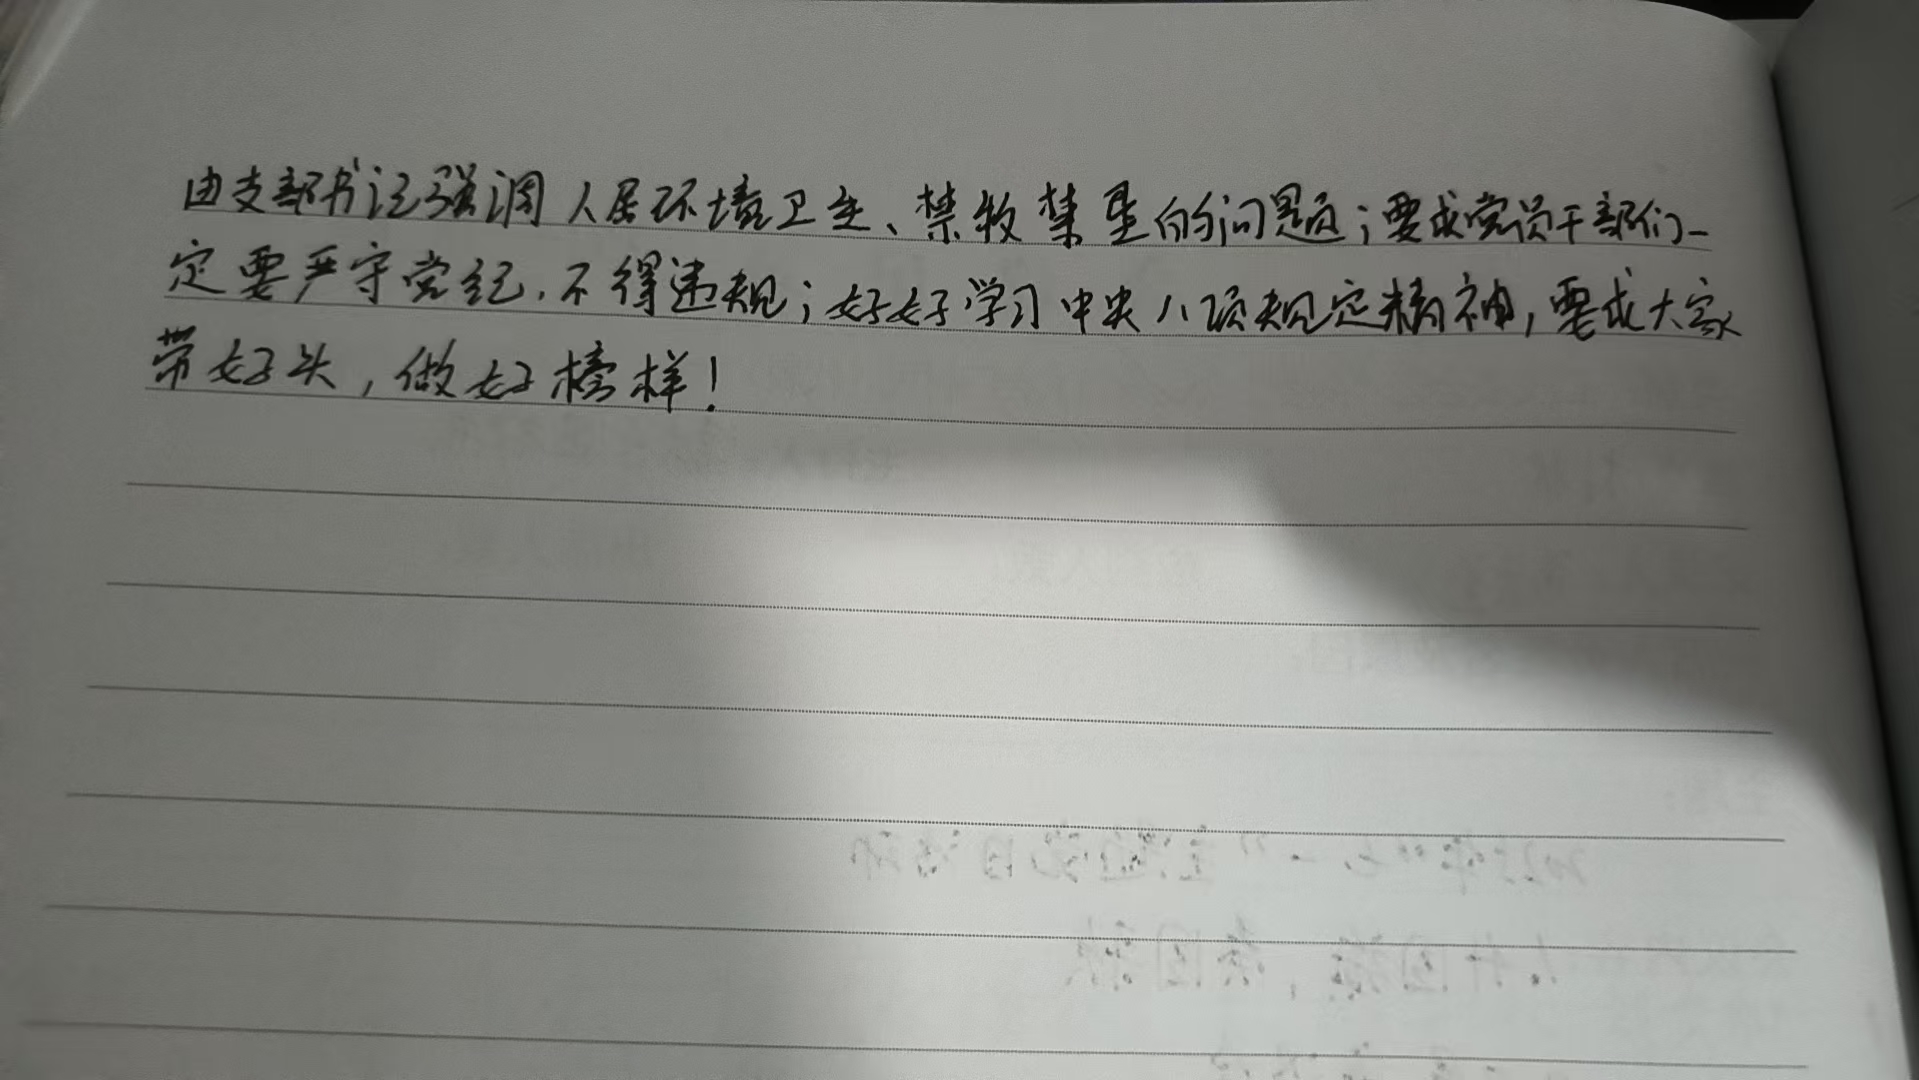 由支部书记强调人居环境卫生、禁牧禁垦的问题；要求党员干部们一
定要严守党纪，不得违规；好好学习中央八项规定精神，要求大家
带好头，做好榜样！